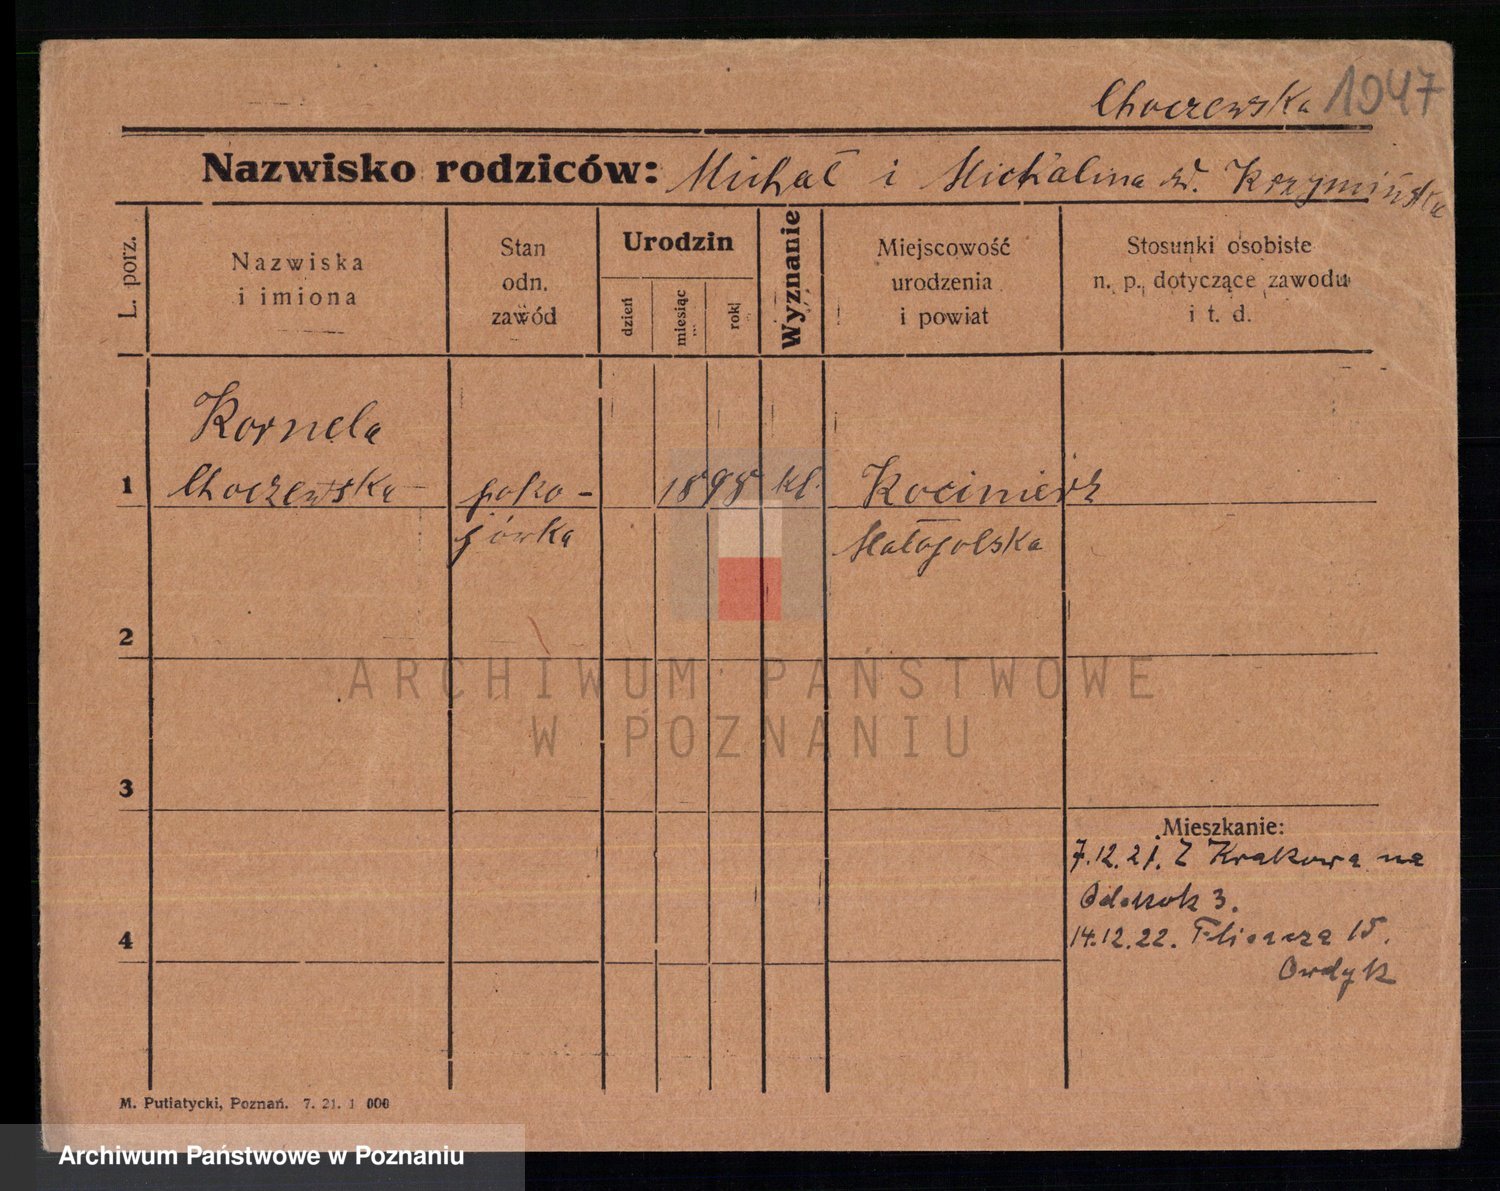 Choczewska 1947
Nazwisko rodziców: Michał i Michalina zd. Krzymińska
L. porz.
Nazwiska
i imiona
Stan
odn.
zawód
Urodzin
dzień
miesiąc
rok
Wyznanie
Miejscowość
urodzenia
i powiat
Stosunki osobiste
n. p. dotyczące zawodu
i t. d.
Kornela
1 Choczewska poko- 1898 kt. Kocimierz
jówka Małopolska
2
3
Mieszkanie:
7.12.21. Z Krakowa na
3.
4 14.12.22. 15.
M. Putiatycki, Poznań. 7. 21. 1 000
ARCHIWUM PAŃSTWOWE
W POZNANIU
Archiwum Państwowe w Poznaniu